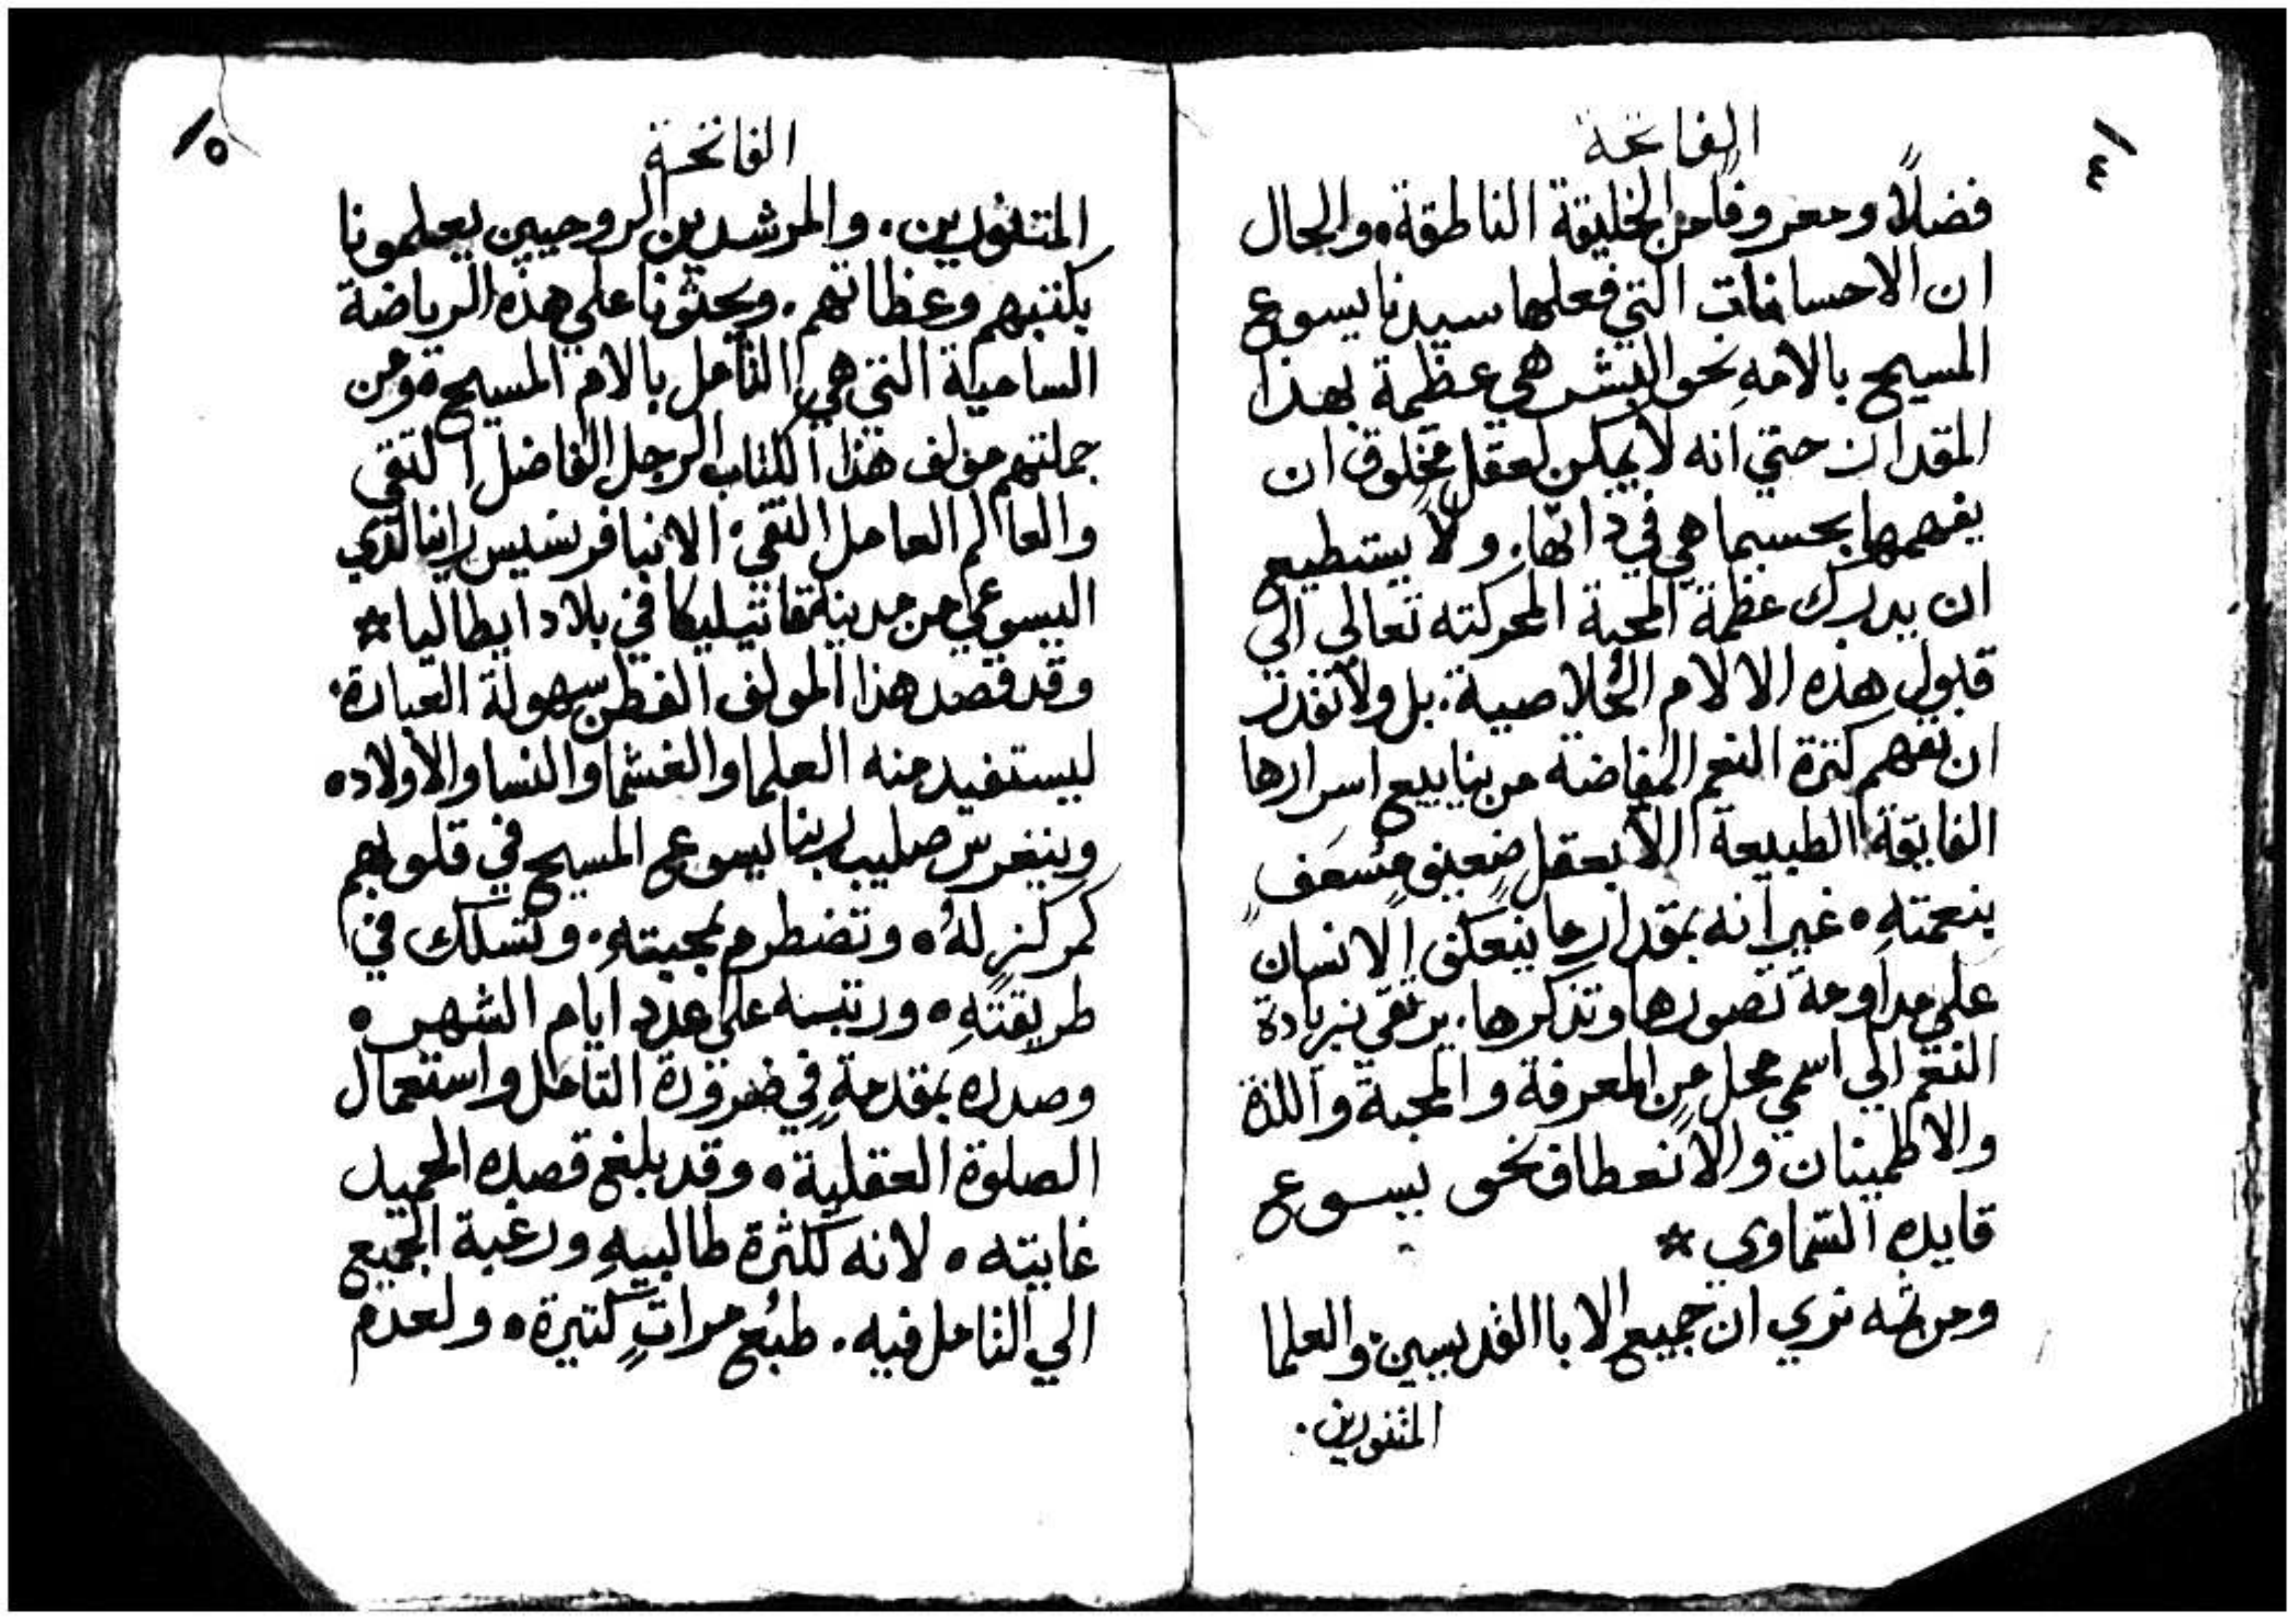 ٤
الفاتحة
فضلًا ومعروفًا من الخليقة الناطقة، والحال
ان الاحسانات التي فعلها سيدنا يسوع
المسيح بالامهِ نحو البشر هي عظيمة بهذا
المقدار حتي انه لا يمكن لعقل مخلوق ان
يفهمها بحسبما هي في ذاتها، ولا يستطيع
ان يدرك عظمة المحبة المحركته تعالي الي
قبول هذه الالام الخلاصية، بل ولا تقدر
ان تفهم كثرة النعم المفاضة من ينابيع اسرارها
الفايقة الطبيعة الا بعقل ضعيفٍ مُسعَفٍ
بنعمتهِ، غير انه بمقدار ما ينعكف الانسان
علي مداومة تصورها وتذكرها، يرتقي بزيادة
النعم الي اسمي محل من المعرفة والمحبة واللذة
والاطمينان والانعطاف نحو يسوع
قايده السّماوي *
ومن ثمه نري ان جميع الابا القديسين والعلما
المتنورين.
٥
الفاتحة
المتنورين، والمرشدين الروحيين يعلمونا
بكتبهم وعظاتهم، ويحثونا علي هذه الرياضة
السامية التي هي التامل بالام المسيح، ومن
جملتهم مولف هذا الكتاب الرجل الفاضل التقي
والعالم العامل النقي، الانبا فرنسيس راينالدي
اليسوعي من مدينة في بلاد ايطاليا *
وقد قصد هذا المولف الفطن سهولة العبارة،
ليستفيد منه العلما والغشما والنسا والاولاد،
وينغرس صليب ربنا يسوع المسيح في قلوبهم
كمركزٍ لهُ، وتضطرم بمحبتهِ، وتسلك في
طريقتهِ، ورتبه علي عدد ايام الشهر،
وصدره بمقدمةٍ في ضرورة التامل واستعمال
الصلوة العقلية، وقد بلغ قصده الحميد
غايته، لانه لكثرة طالبيهِ ورغبة الجميع
الي التامل فيه، طبُع مراتٍ كتيرة، ولعدم